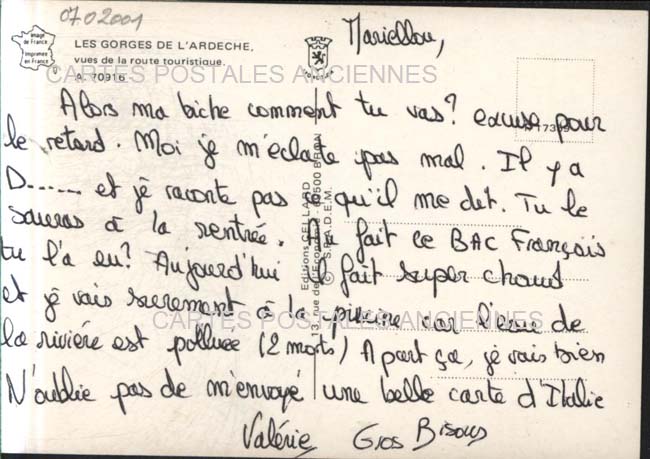 07 02001
image de France
imprimée en France
LES GORGES DE L'ARDECHE,
vues de la route touristique.
A. 70916
CARTES POSTALES ANCIENNES
Mariellou,
Alors ma biche comment tu vas? excuse pour
le retard. Moi je m'éclate pas mal. Il y a
D...... et jê raconte pas ce qu'il me dit. Tu le
sauras à la rentrée. Au fait le BAC Français
tu l'a eu? Aujourd'hui il fait super chaud
et jê vais surement à la piscine car l'eau de
la rivière est polluée (2 morts) A part ça, je vais bien
N'oublie pas de m'envoyé une belle carte d'Italie
Valérie Gros Bisous
Editions CELLARD
69500 BRON
CARTES POSTALES ANCIENNES